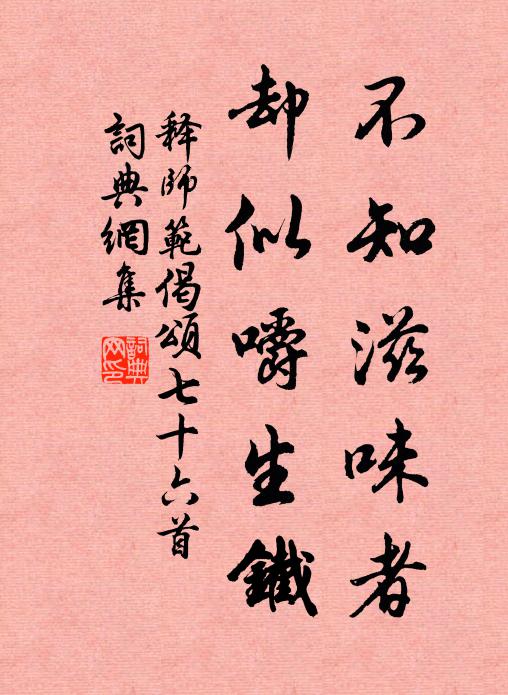 不知滋味者
却似嚼生鐵
释師範偈頌七十六首
詞典網集
詞典
网印